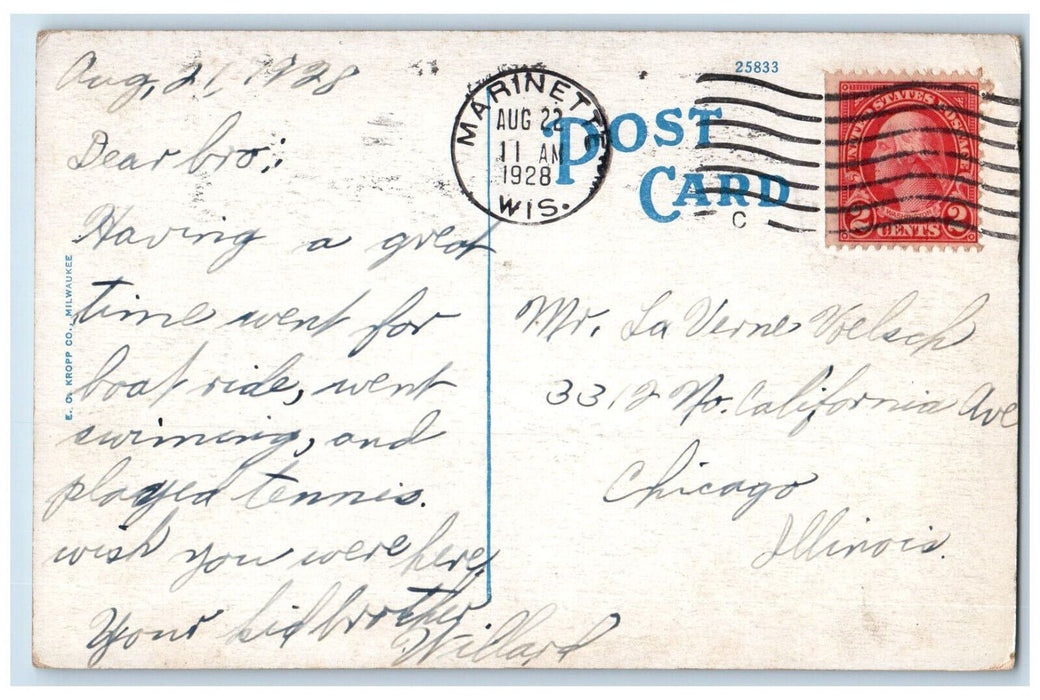 Aug, 21, 1928
Dear bro,:
Having a great
time went for
boat ride, went
swiming, and
played tennis.
wish you were here,
Your kid brother,
Willard
E. C. KROPP CO., MILWAUKEE
MARINETTE
AUG 22
11 AM
1928
WIS.
25833
POST
CARD
C
UNITED STATES POSTAGE
2 CENTS 2
Mr. La Verne Voelsch
3312 No. California Ave
Chicago
Illinois.